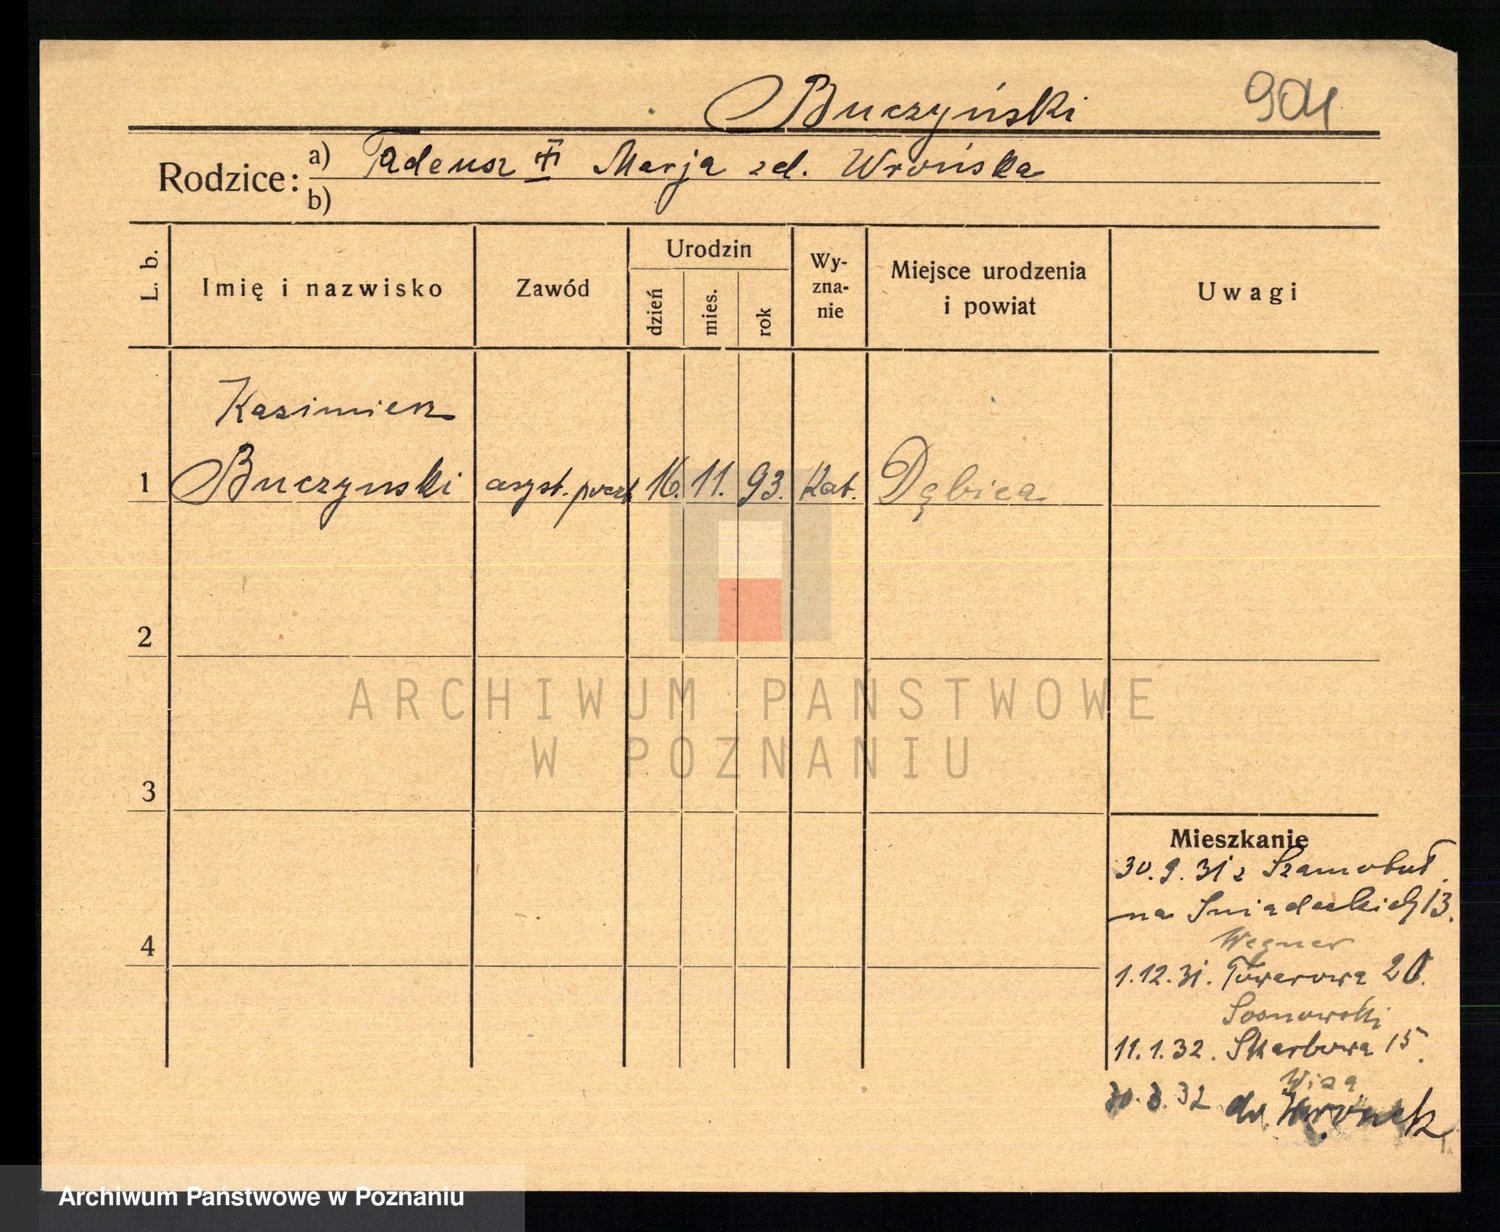 Buczyński
904
Rodzice: a) Tadeusz Marja zd. Wrońska
b)
L. b.
Imię i nazwisko
Zawód
Urodzin
dzień
mies.
rok
Wy-
zna-
nie
Miejsce urodzenia
i powiat
Uwagi
Kazimierz
1 Buczynski asyst. poczt 16. 11. 93. Kat. Dębica
2
ARCHIWUM PAŃSTWOWE
W POZNANIU
3
4
Mieszkanie
30.9.31 z Szamotuł.
na Sniadeckich 13.
Wegner
1.12.31. Towarowa 20.
Sosnowski
11.1.32. Skarbowa 15.
Wiza
32 do Wronek
Archiwum Państwowe w Poznaniu